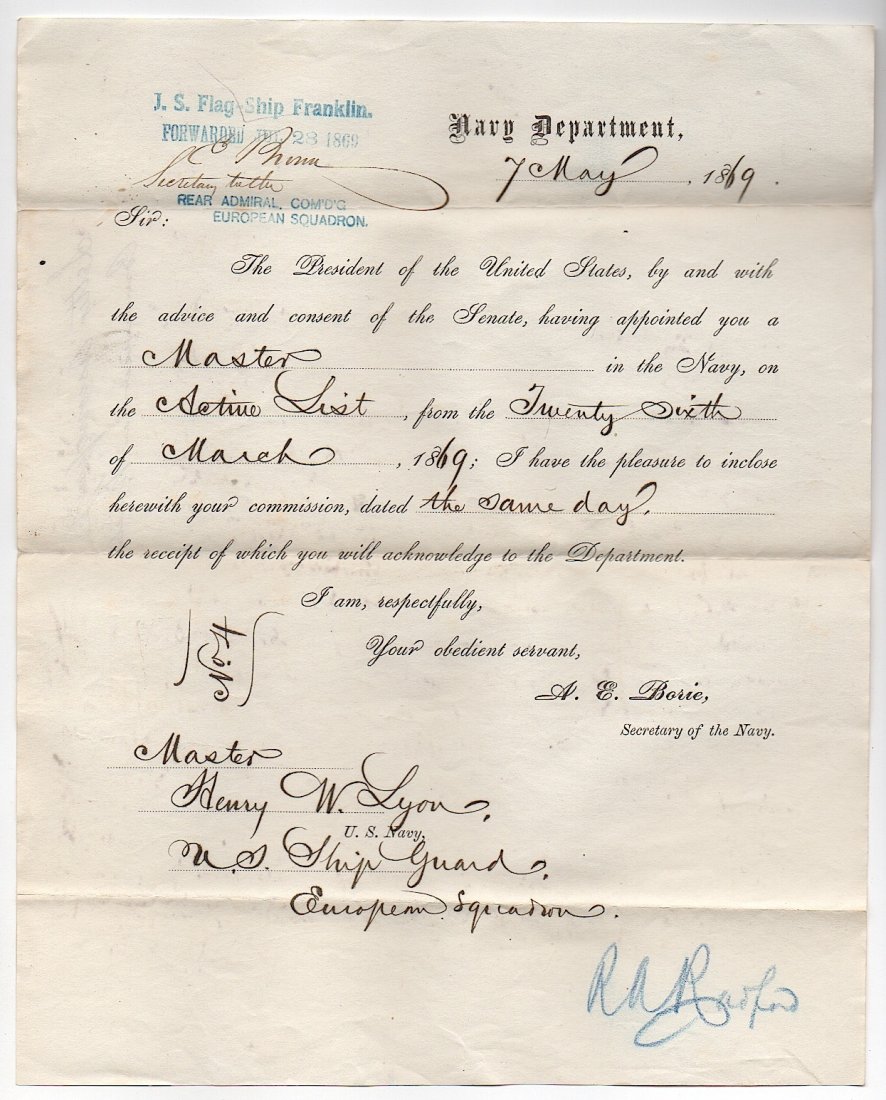 U. S. Flag-Ship Franklin.
FORWARDED JUL 28 1869
Secretary to the
REAR ADMIRAL, COM'D'G
EUROPEAN SQUADRON.
Navy Department,
7 May, 1869.
Sir:
The President of the United States, by and with
the advice and consent of the Senate, having appointed you a
Master in the Navy, on
the Active List, from the Twenty sixth
of March, 1869; I have the pleasure to inclose
herewith your commission, dated the same day,
the receipt of which you will acknowledge to the Department.
I am, respectfully,
Your obedient servant,
A. E. Borie,
Secretary of the Navy.
No. 4
Master
Henry W. Lyon,
U. S. Navy,
U.S. Ship Guard,
European Squadron.
R A Radford